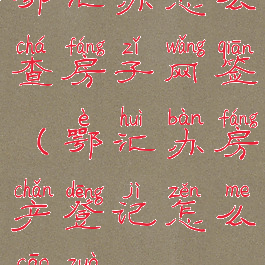 鄂汇办怎么
chá fáng zǐ wǎng qiān
查房子网签
è huì bàn fáng
(鄂汇办房
chǎn dēng jì zěn me
产登记怎么
cāo zuò